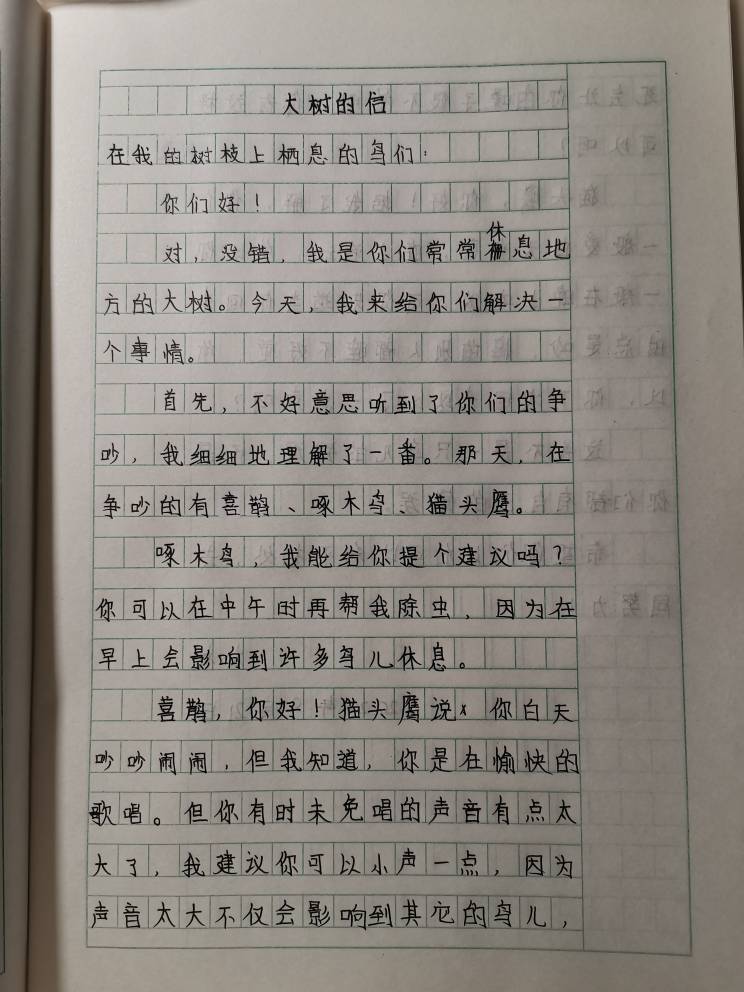 大树的信
在我的树枝上栖息的鸟们：
你们好！
对，没错，我是你们常常休息地
方的大树。今天，我来给你们解决一
个事情。
首先，不好意思听到了你们的争
吵，我细细地理解了一番。那天，在
争吵的有喜鹊、啄木鸟、猫头鹰。
啄木鸟，我能给你提个建议吗？
你可以在中午时再帮我除虫，因为在
早上会影响到许多鸟儿休息。
喜鹊，你好！猫头鹰说，你白天
吵吵闹闹，但我知道，你是在愉快的
歌唱。但你有时未免唱的声音有点太
大了，我建议你可以小声一点，因为
声音太大不仅会影响到其它的鸟儿，